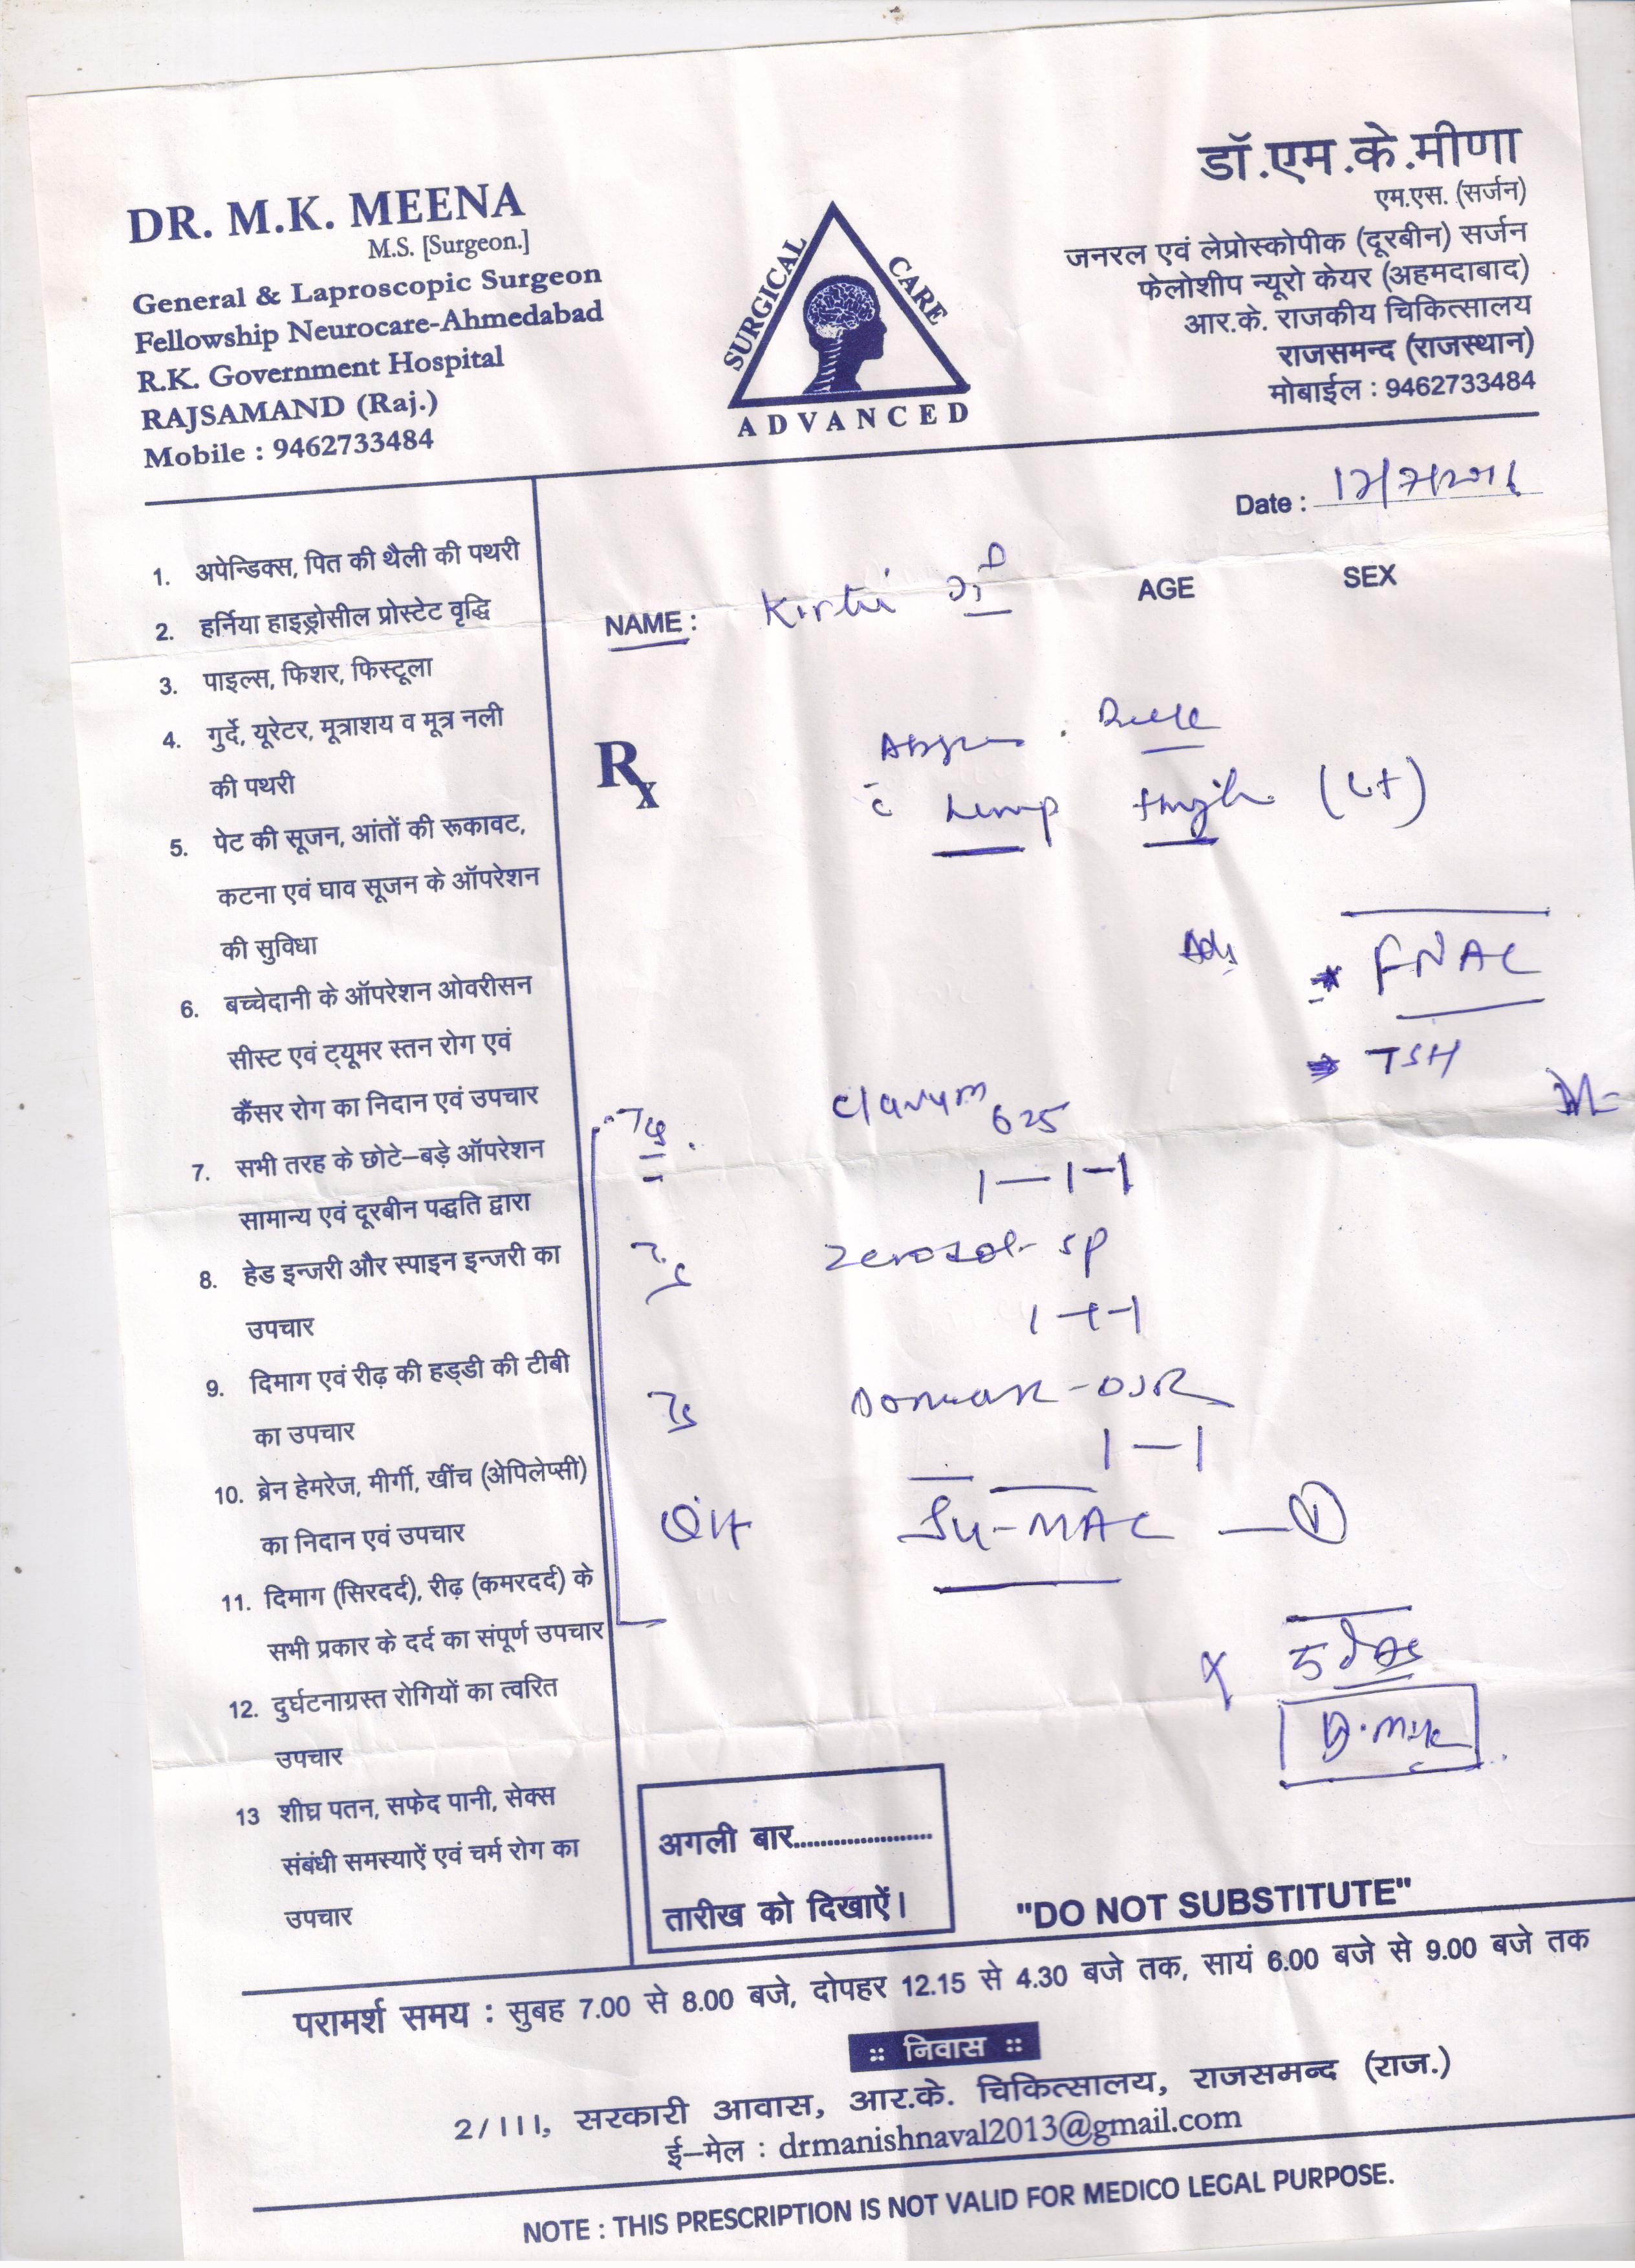 DR. M.K. MEENA
M.S. [Surgeon.]
General & Laproscopic Surgeon
Fellowship Neurocare-Ahmedabad
R.K. Government Hospital
RAJSAMAND (Raj.)
Mobile : 9462733484
SURGICAL CARE
ADVANCED
डॉ.एम.के.मीणा
एम.एस. (सर्जन)
जनरल एवं लेप्रोस्कोपीक (दूरबीन) सर्जन
फेलोशीप न्यूरो केयर (अहमदाबाद)
आर.के. राजकीय चिकित्सालय
राजसमन्द (राजस्थान)
मोबाईल : 9462733484
Date :
1. अपेन्डिक्स, पित की थैली की पथरी
2. हर्निया हाइड्रोसील प्रोस्टेट वृद्धि
3. पाइल्स, फिशर, फिस्टूला
4. गुर्दे, यूरेटर, मूत्राशय व मूत्र नली
की पथरी
5. पेट की सूजन, आंतों की रूकावट,
कटना एवं घाव सूजन के ऑपरेशन
की सुविधा
6. बच्चेदानी के ऑपरेशन ओवरीसन
सीस्ट एवं ट्यूमर स्तन रोग एवं
कैंसर रोग का निदान एवं उपचार
7. सभी तरह के छोटे–बड़े ऑपरेशन
सामान्य एवं दूरबीन पद्धति द्वारा
8. हेड इन्जरी और स्पाइन इन्जरी का
उपचार
9. दिमाग एवं रीढ़ की हड्डी की टीबी
का उपचार
10. ब्रेन हेमरेज, मीर्गी, खींच (ओपिलेप्सी)
का निदान एवं उपचार
11. दिमाग (सिरदर्द), रीढ़ (कमरदर्द) के
सभी प्रकार के दर्द का संपूर्ण उपचार
12. दुर्घटनाग्रस्त रोगियों का त्वरित
उपचार
13 शीघ्र पतन, सफेद पानी, सेक्स
संबंधी समस्याऐं एवं चर्म रोग का
उपचार
NAME : Kirti AGE SEX
Rx
Lump (Lt)
Adv
FNAC
TSH
Clavum 625
1—1—1
Zerodol-SP
1-1-1
1—1
MAC
5
अगली बार......................
तारीख को दिखाऐं।
"DO NOT SUBSTITUTE"
परामर्श समय : सुबह 7.00 से 8.00 बजे, दोपहर 12.15 से 4.30 बजे तक, सायं 6.00 बजे से 9.00 बजे तक
:: निवास ::
2/III, सरकारी आवास, आर.के. चिकित्सालय, राजसमन्द (राज.)
ई–मेल : drmanishnaval2013@gmail.com
NOTE : THIS PRESCRIPTION IS NOT VALID FOR MEDICO LEGAL PURPOSE.